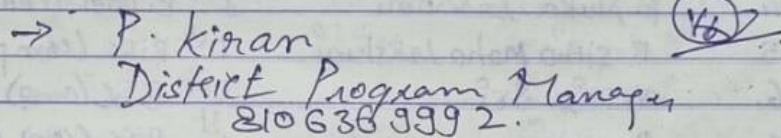 → P. Kiran
District Program Manager
8106369992.